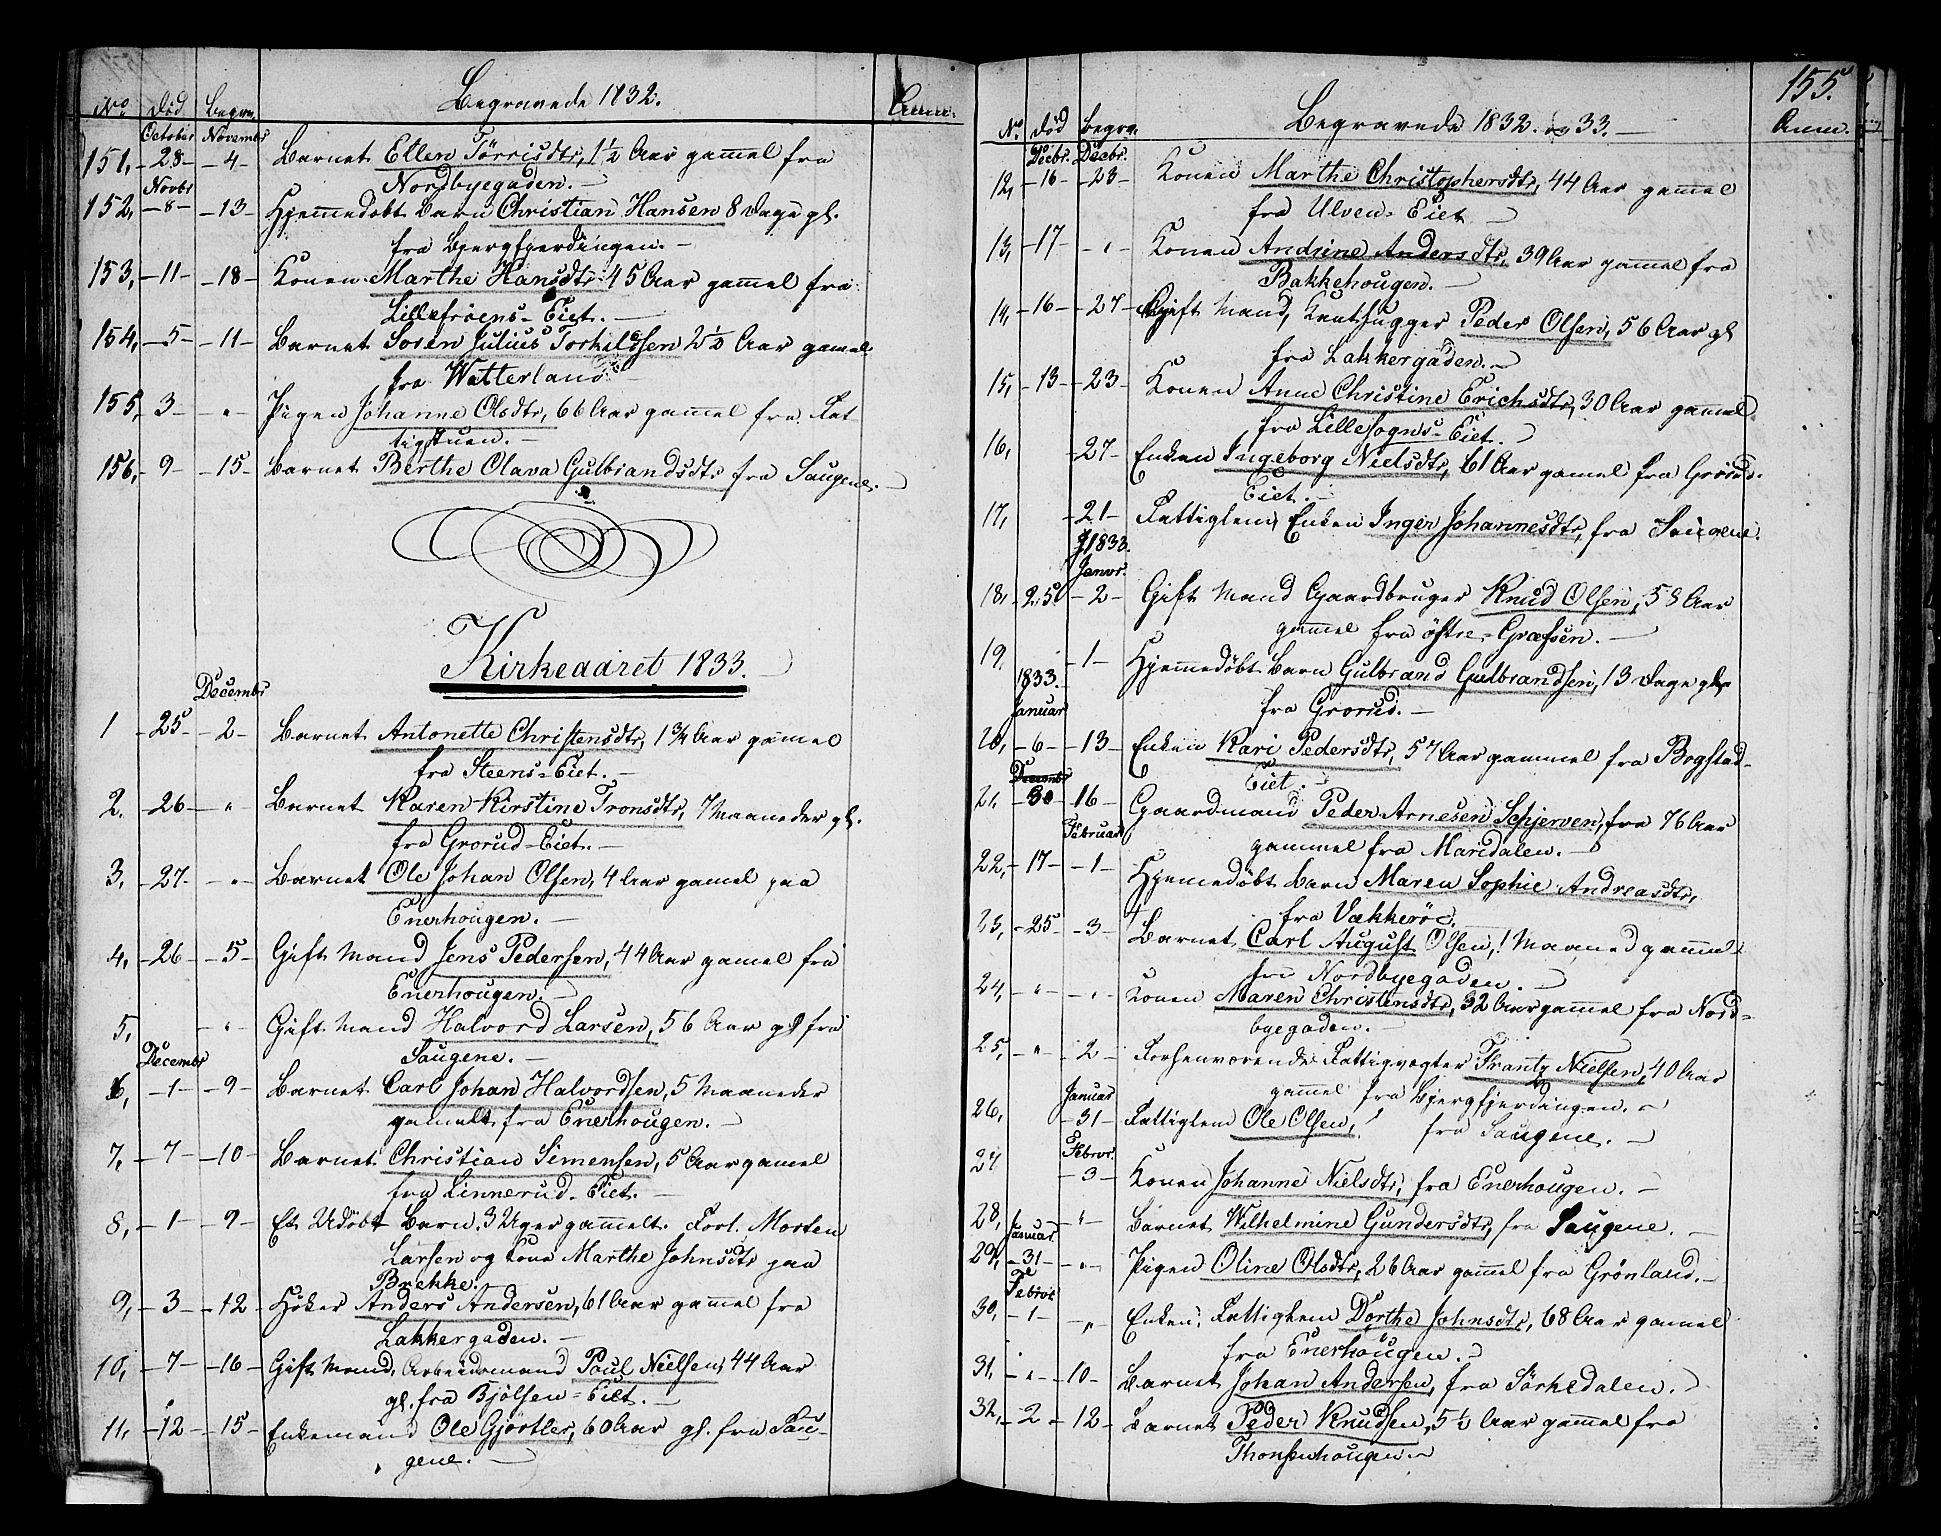 No Død Begra. Begravede 1832. Anm.
October Novembr
151, -28- -4- Barnet Ellen Tørrisdtr, 1½ Aar gammel fra
Nordbyegaden.-
Novbr
152, -8- -13- Hjemmedøbt Barn Christian Hansen 8 Dage gl.
fra Bjergfjerdingen.-
153, -11- -18- Konen Marthe Hansdtr 45 Aar gammel fra
Lillefröens-Eiet.-
154, -5- -11- Barnet Soren Julius Torkildsen 2½ Aar gamel
fra Watterland
155, 3- -"- Pigen Johanne Olsdtr, 66 Aar gammel fra Fat-
tigstuen.-
156, -9- -15- Barnet Berthe Olava Gulbrandsdtr fra Saugene.-
Kirkeaaret 1833.
Decembr
1 -25- -2- Barnet Antonette Christensdtr, 1¾ Aar gamel
fra Steens-Eiet.-
2. -26- " Barnet Karen Kirstine Tronsdtr, 7 Maaneder gl.
fra Grorud-Eiet.-
3, -27- -"- Barnet Ole Johan Olsen, 4 Aar gamel paa
Enerhougen.-
4, -26- -5- Gift Mand Jens Pedersen, 44 Aar gamel fra
Enerhougen.-
5, -"- Gift Mand Halvord Larsen, 56 Aar gl fra
Saugene.-
Decembr
6, -1- -9- Barnet Carl Johan Halvordsen, 5 Maaneder
gamelt fra Enerhougen.-
7, -7- -10- Barnet Christian Simensen, 5 Aar gamel
fra Linnerud-Eiet.-
8, -1- -9- Et Udøbt Barn 3 Uger gammelt. Forl. Morten
Larsen og Kone Marthe Johnsdtr paa
Brekke.-
9, -3- -12- Høker Anders Andersen, 61 Aar gammel fra
Lakkergaden.-
10, -7- -16- Gift Mand, Arbeidsmand Paul Nielsen, 44 Aar
gl. fra Bjölsen-Eiet.-
11, -12- -15- Enkemand Ole Gjörtler, 60 Aar gl. fra Sau-
gene.-
155.
No Død Begra. Begravede 1832. og 33.- Anm.
Decbr. Decbr.
12, -16- -23- Konen Marthe Christophersdtr, 44 Aar gamel
fra Ulven-Eiet
13, -17- -"- Konen Andrine Andersdtr, 39 Aar gammel fra
Bakkehougen.-
14, -16- -27- Gift Mand, Knuthugger Peder Olsen, 56 Aar gl
fra Lakkergaden.-
15, -13- -23- Konen Anne Christine Erichsdtr, 30 Aar gamel
fra Lillesogns-Eiet.
16, -27- Enken Ingeborg Nielsdtr, 61 Aar gamel fra Grorud-
Eiet.-
17, -21- Fattiglem, Enken Inger Johannesdtr, fra Saugene.
1833.
Janvr.
18, -25 -2- Gift Mand Gaardbruger Knud Olsen, 58 Aar
gammel fra östre-Græfsen.-
19, -1- Hjemmedøbt Barn Gulbrand Gulbrandsen, 13 Dage gl
fra Grorud.-
1833.
Januar
20, -6- -13- Enken Kari Pedersdtr, 57 Aar gammel fra Bogstad-
Eiet.
Decembr
21, -30 -16- Gaardmand Peder Arnesen Schjerven, fra 76 Aar
gammel fra Maridalen.-
Februar
22, -17- -1- Hjemedøbt Barn Maren Sophie Andreasdtr,
fra Vækkerö.
23, -25- -3- Barnet Carl August Olsen, 1 Maaned gammel
fra Nordbyegaden.-
24, -"- -"- Konen Maren Christensdtr, 32 Aar gammel fra Nord-
byegaden.-
25, -"- -2- Forhenværende Fattigvogter Frantz Nielsen, 40 Aar
gammel fra Bjergfjerdingen.-
Januar
26, -31- Fattiglem Ole Olsen,! fra Saugene.-
Febvr.
27 -3- Konen Johanne Nielsdtr, fra Enerhougen.-
28, -"- Barnet Wilhelmine Gundersdtr, fra Saugene.-
Januar
29, -31- -"- Pigen Oline Olsdtr, 26 Aar gammel fra Grönland.-
Febvr
30, -1- -"- Enken, Fattiglem Dorthe Johnsdtr, 68 Aar gamel
fra Enerhougen.-
31, -"- -10- Barnet Johan Andersen, fra Sörkedalen.
32, -2- -12- Barnet Peder Knudsen, 5½ Aar gammel fra
Thonsenhougen.-